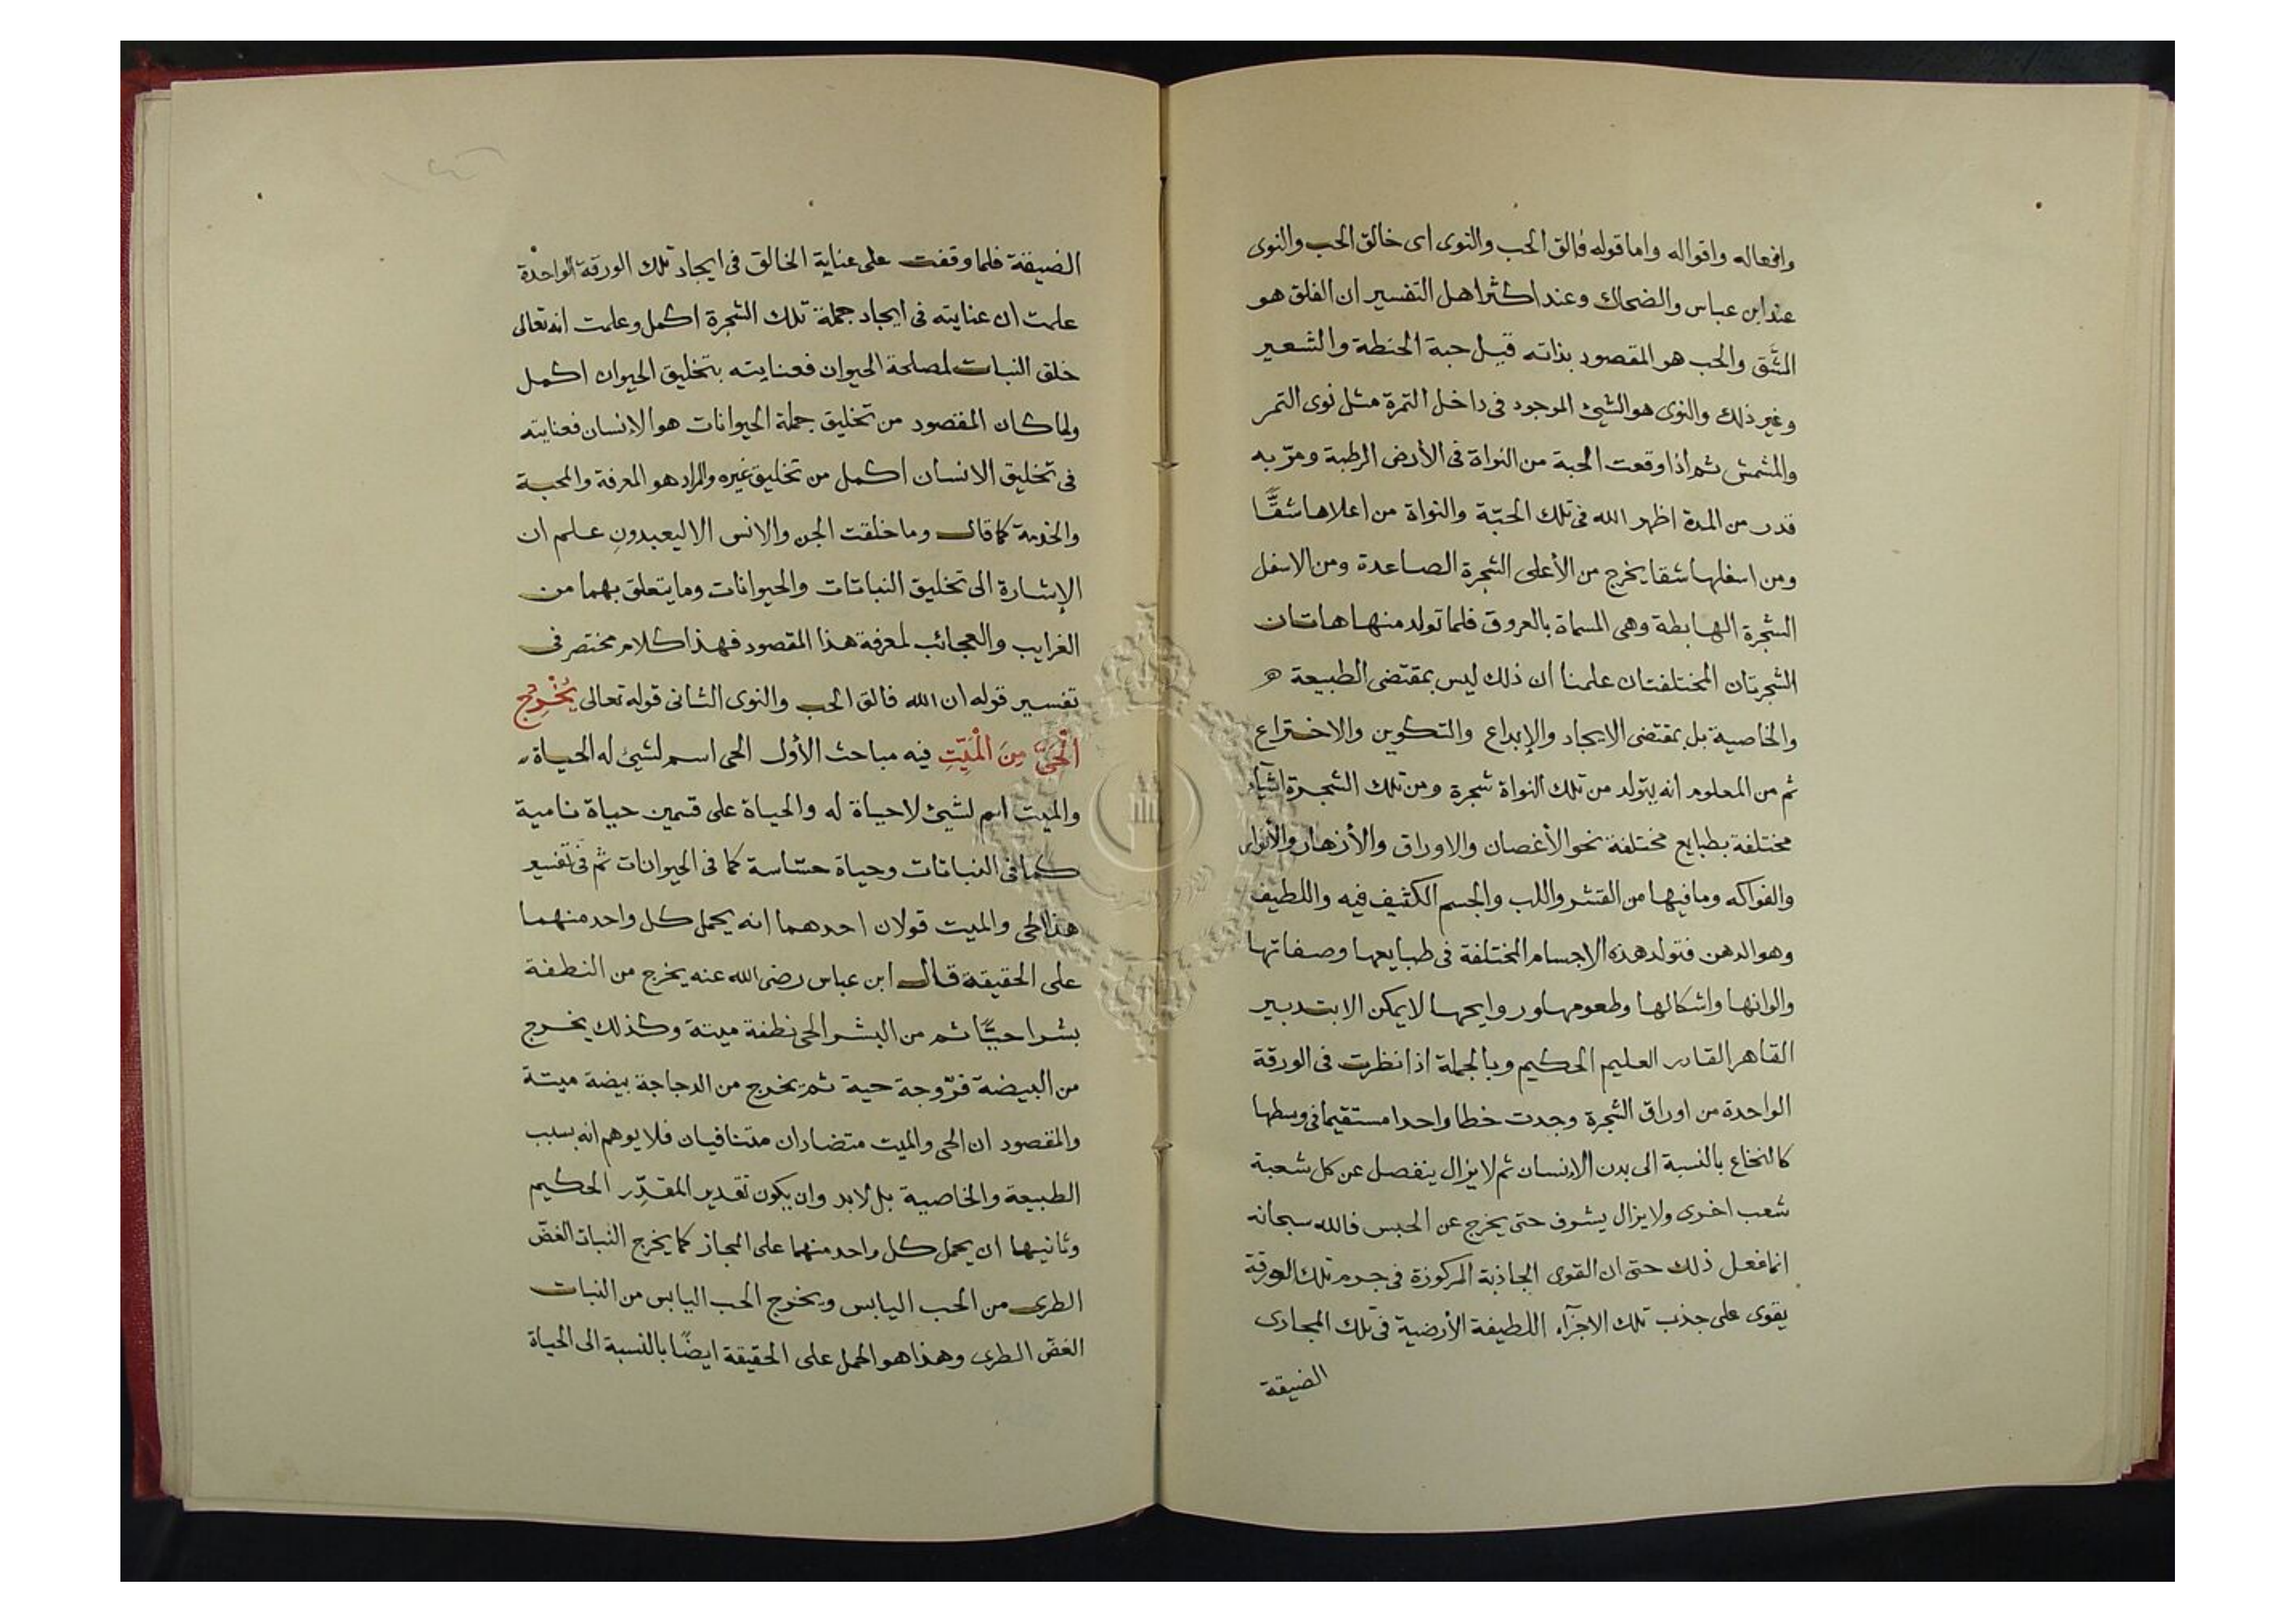 وافعاله واقواله واما قوله فالق الحب والنوى اى خالق الحب والنوى
عند ابن عباس والضحاك وعند اكثر اهل التفسير ان الفلق هو
الشق والحب هو المقصود بذاته قيل حبة الحنطة والشعير
وغير ذلك والنوى هو الشيئ الموجود فى داخل التمرة مثل نوى التمر
والمشمش ثم اذا وقعت الحبة من النواة فى الأرض الرطبة ومرّ به
قدر من المدة اظهر الله فى تلك الحبّة والنواة من اعلاها شقًّا
ومن اسفلها شقا يخرج من الأعلى الشجرة الصاعدة ومن الاسفل
الشجرة الهابطة وهى المسماة بالعروق فلما تولد منها هاتان
الشجرتان المختلفتان علمنا ان ذلك ليس بمقتضى الطبيعة
والخاصية بل بمقتضى الايجاد والإبداع والتكوين والاختراع
ثم من المعلوم انه يتولد من تلك النواة شجرة ومن تلك الشجرة اشيآء
مختلفة بطبايع مختلفة نحو الأغصان والاوراق والأزهار والأنوار
والفواكه وما فيها من القشر واللب والجسم الكثيف فيه واللطيف
وهو الدهن فتولد هذه الاجسام المختلفة فى طبايعها وصفاتها
والوانها واشكالها وطعومها وروايحها لا يمكن الا بتدبير
القاهر القادر العليم الحكيم وبالجملة اذا نظرت فى الورقة
الواحدة من اوراق الشجرة وجدت خطا واحدا مستقيما فى وسطها
كالنخاع بالنسبة الى بدن الانسان ثم لا يزال ينفصل عن كل شعبة
شعب اخرى ولا يزال يشوف حتى يخرج عن الحبس فالله سبحانه
انما فعل ذلك حتى ان القوى الجاذبة المركوزة فى جرم تلك الورقة
يقوى على جذب تلك الاجزآء اللطيفة الأرضية فى تلك المجارى
الضيقة
الضيقة فلما وقفت على عناية الخالق فى ايجاد تلك الورقة الواحدة
علمت ان عنايته فى ايجاد جملة تلك الشجرة اكمل وعلمت انه تعالى
خلق النبات لمصلحة الحيوان فعنايته بتخليق الحيوان اكمل
ولما كان المقصود من تخليق جملة الحيوانات هو الانسان فعنايته
فى تخليق الانسان اكمل من تخليق غيره والمراد هو المعرفة والمحبة
والخدمة كما قال وما خلقت الجن والانس الا ليعبدونِ علم ان
الإشارة الى تخليق النباتات والحيوانات وما يتعلق بهما من
الغرايب والعجائب لمعرفة هذا المقصود فهذا كلام مختصر فى
تفسير قوله ان الله فالق الحب والنوى الثانى قوله تعالى يُخْرِجُ
الْحَىَّ مِنَ الْمَيِّتِ فيه مباحث الأول الحى اسم لشيئ له الحياة
والميت اسم لشيئ لا حياة له والحياة على قسمين حياة نامية
كما فى النباتات وحياة حسّاسة كما فى الحيوانات ثم فى تفسير
هذا الحى والميت قولان احدهما انه يحمل كل واحد منهما
على الحقيقة قال ابن عباس رضى الله عنه يخرج من النطفة
بشرا حيًّا ثم من البشر الحى نطفة ميتة وكذلك يخرج
من البيضة فرّوجة حية ثم يخرج من الدجاجة بيضة ميتة
والمقصود ان الحى والميت متضادان متنافيان فلا يوهم انه بسبب
الطبيعة والخاصية بل لابد وان يكون تقدير المقدِّر الحكيم
وثانيها ان يحمل كل واحد منهما على المجاز كما يخرج النبات الغضّ
الطرى من الحب اليابس ويخرج الحب اليابس من النبات
الغضّ الطرى وهذا هو الحمل على الحقيقة ايضًا بالنسبة الى الحياة